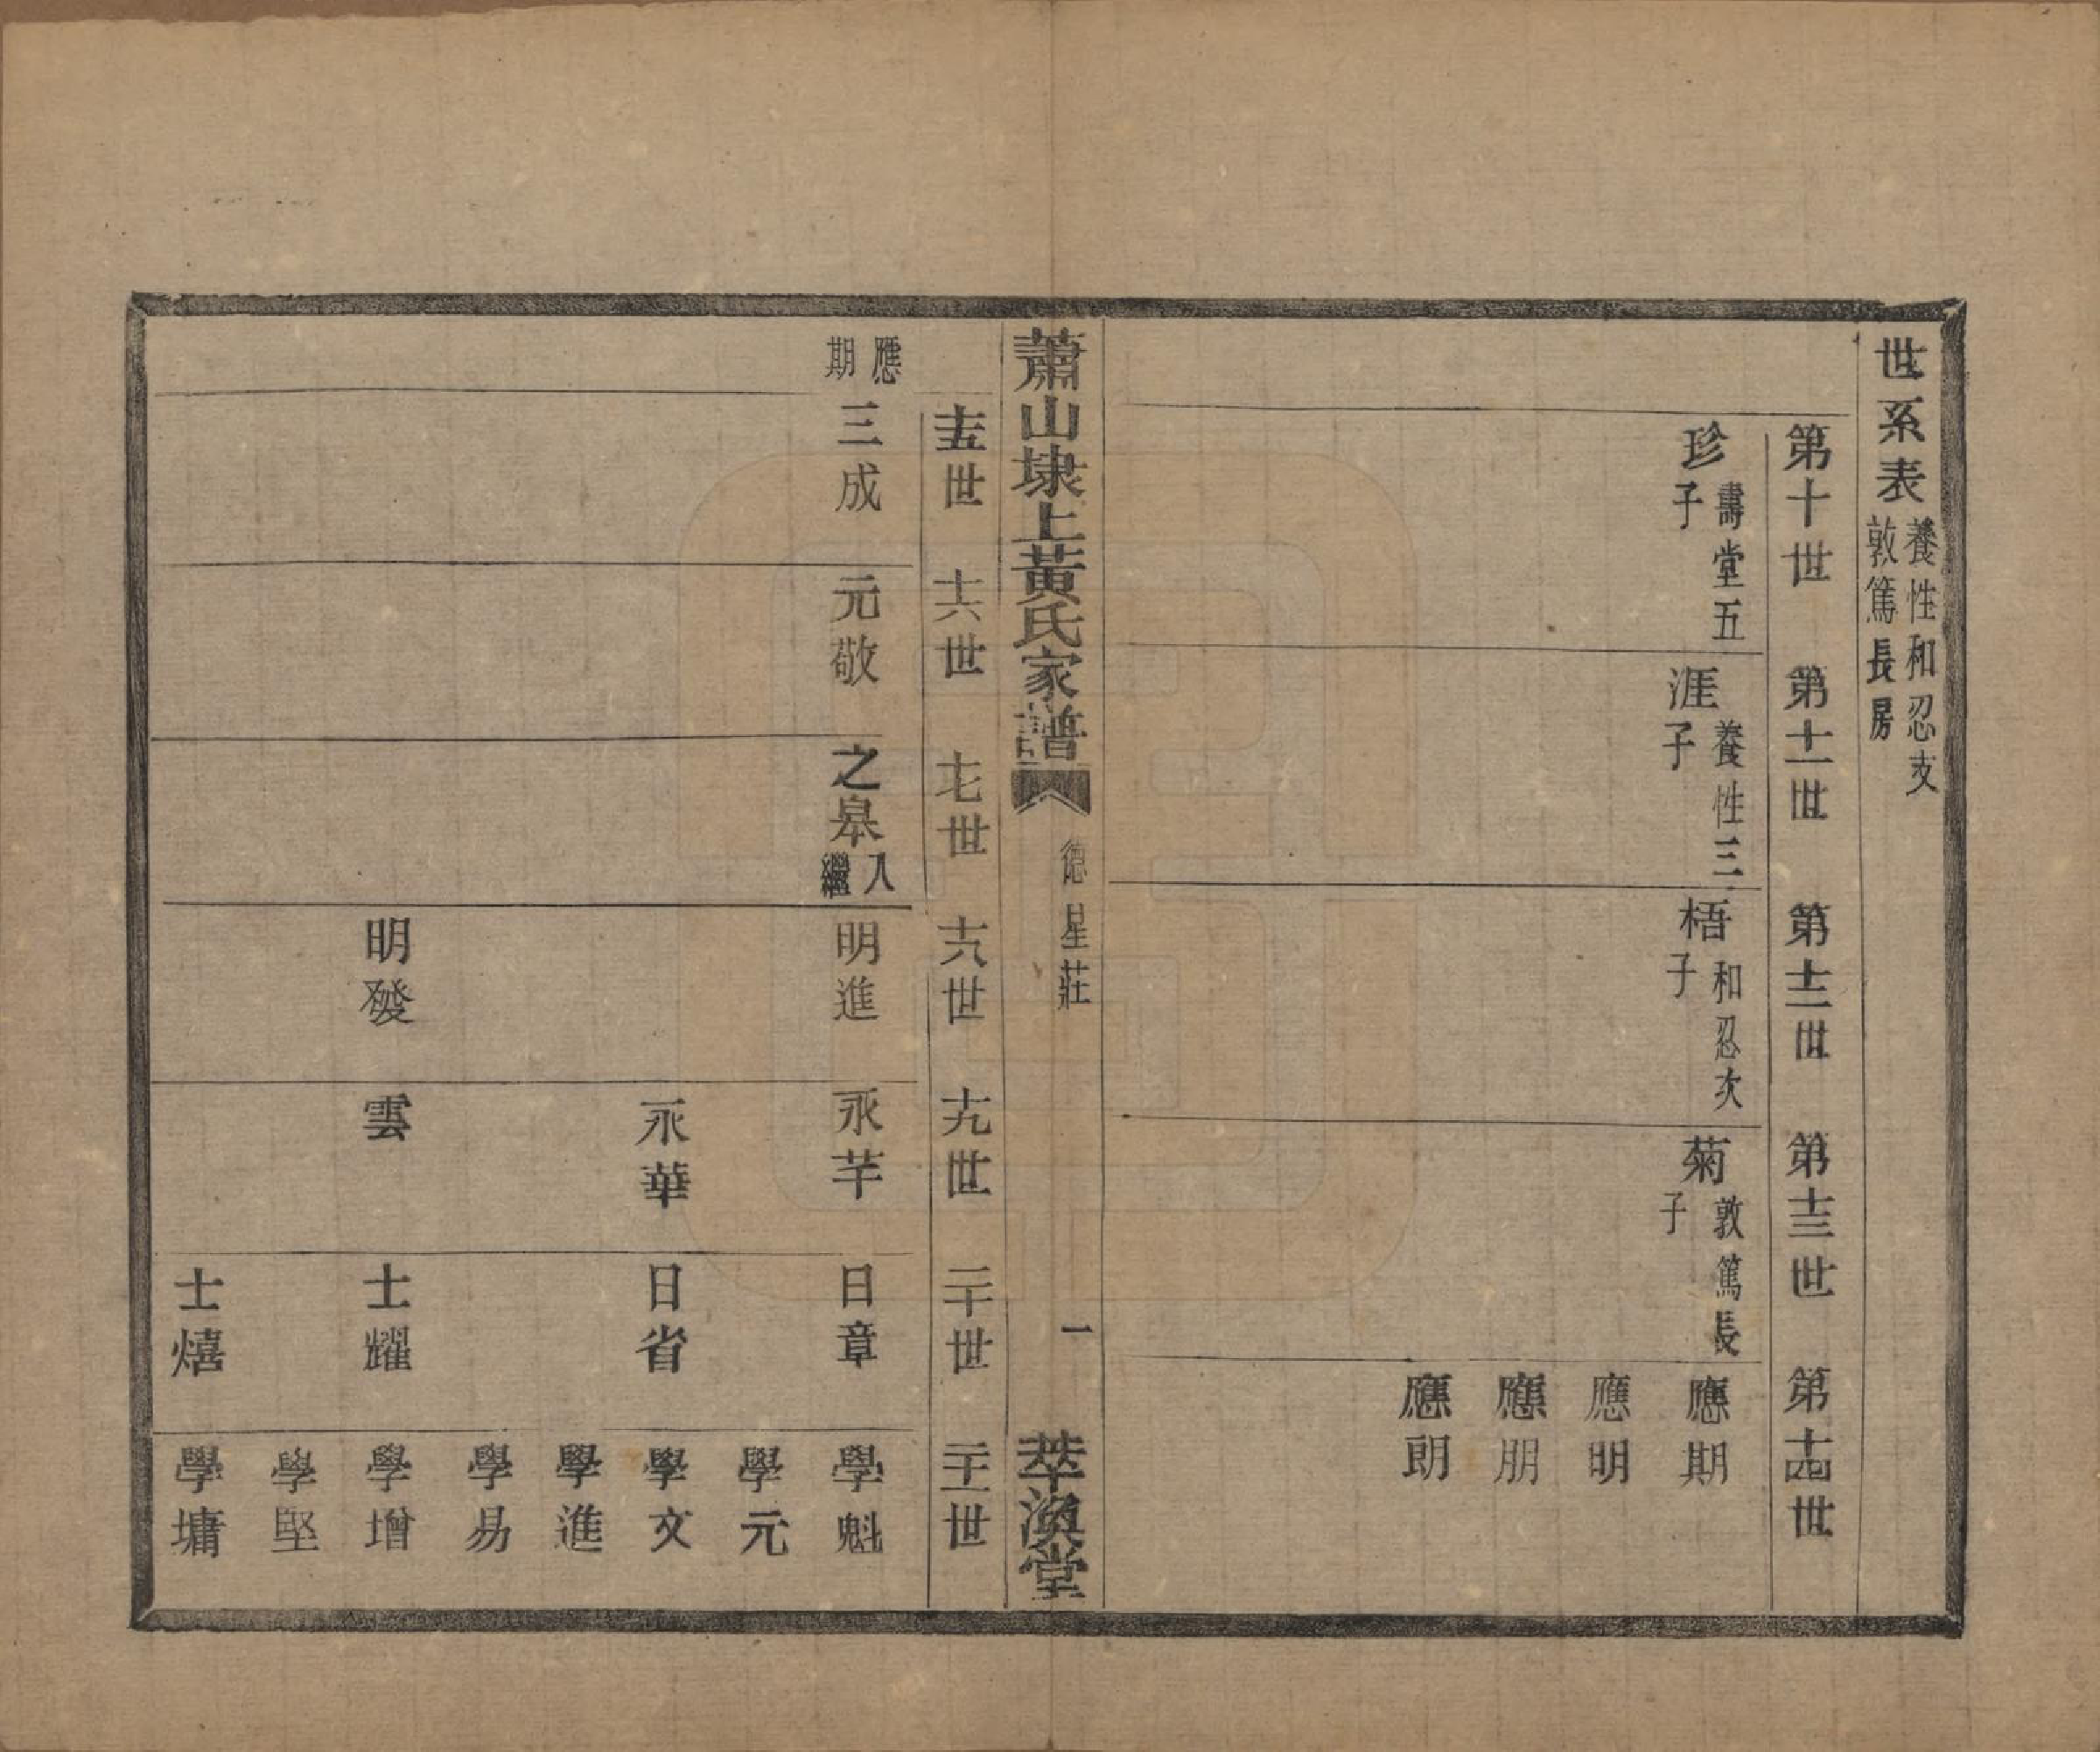 世系表 養性和忍支
敦篤長房
第十世 第十一世 第十二世 第十三世 第十四世
珍 壽堂五子
涯 養性三子
梧 和忍次子
菊 敦篤長子
應期
應明
應朋
應朗
蕭山埭上黃氏家譜 德星莊 一 萃渙堂
十五世 十六世 十七世 十八世 十九世 二十世 二十一世
應期
三成 元敬 之皋 入繼 明進 永芊 日章 學魁
學元
永華 日省 學文
學進
學易
明發 雲 士耀 學增
學堅
士熺 學墉